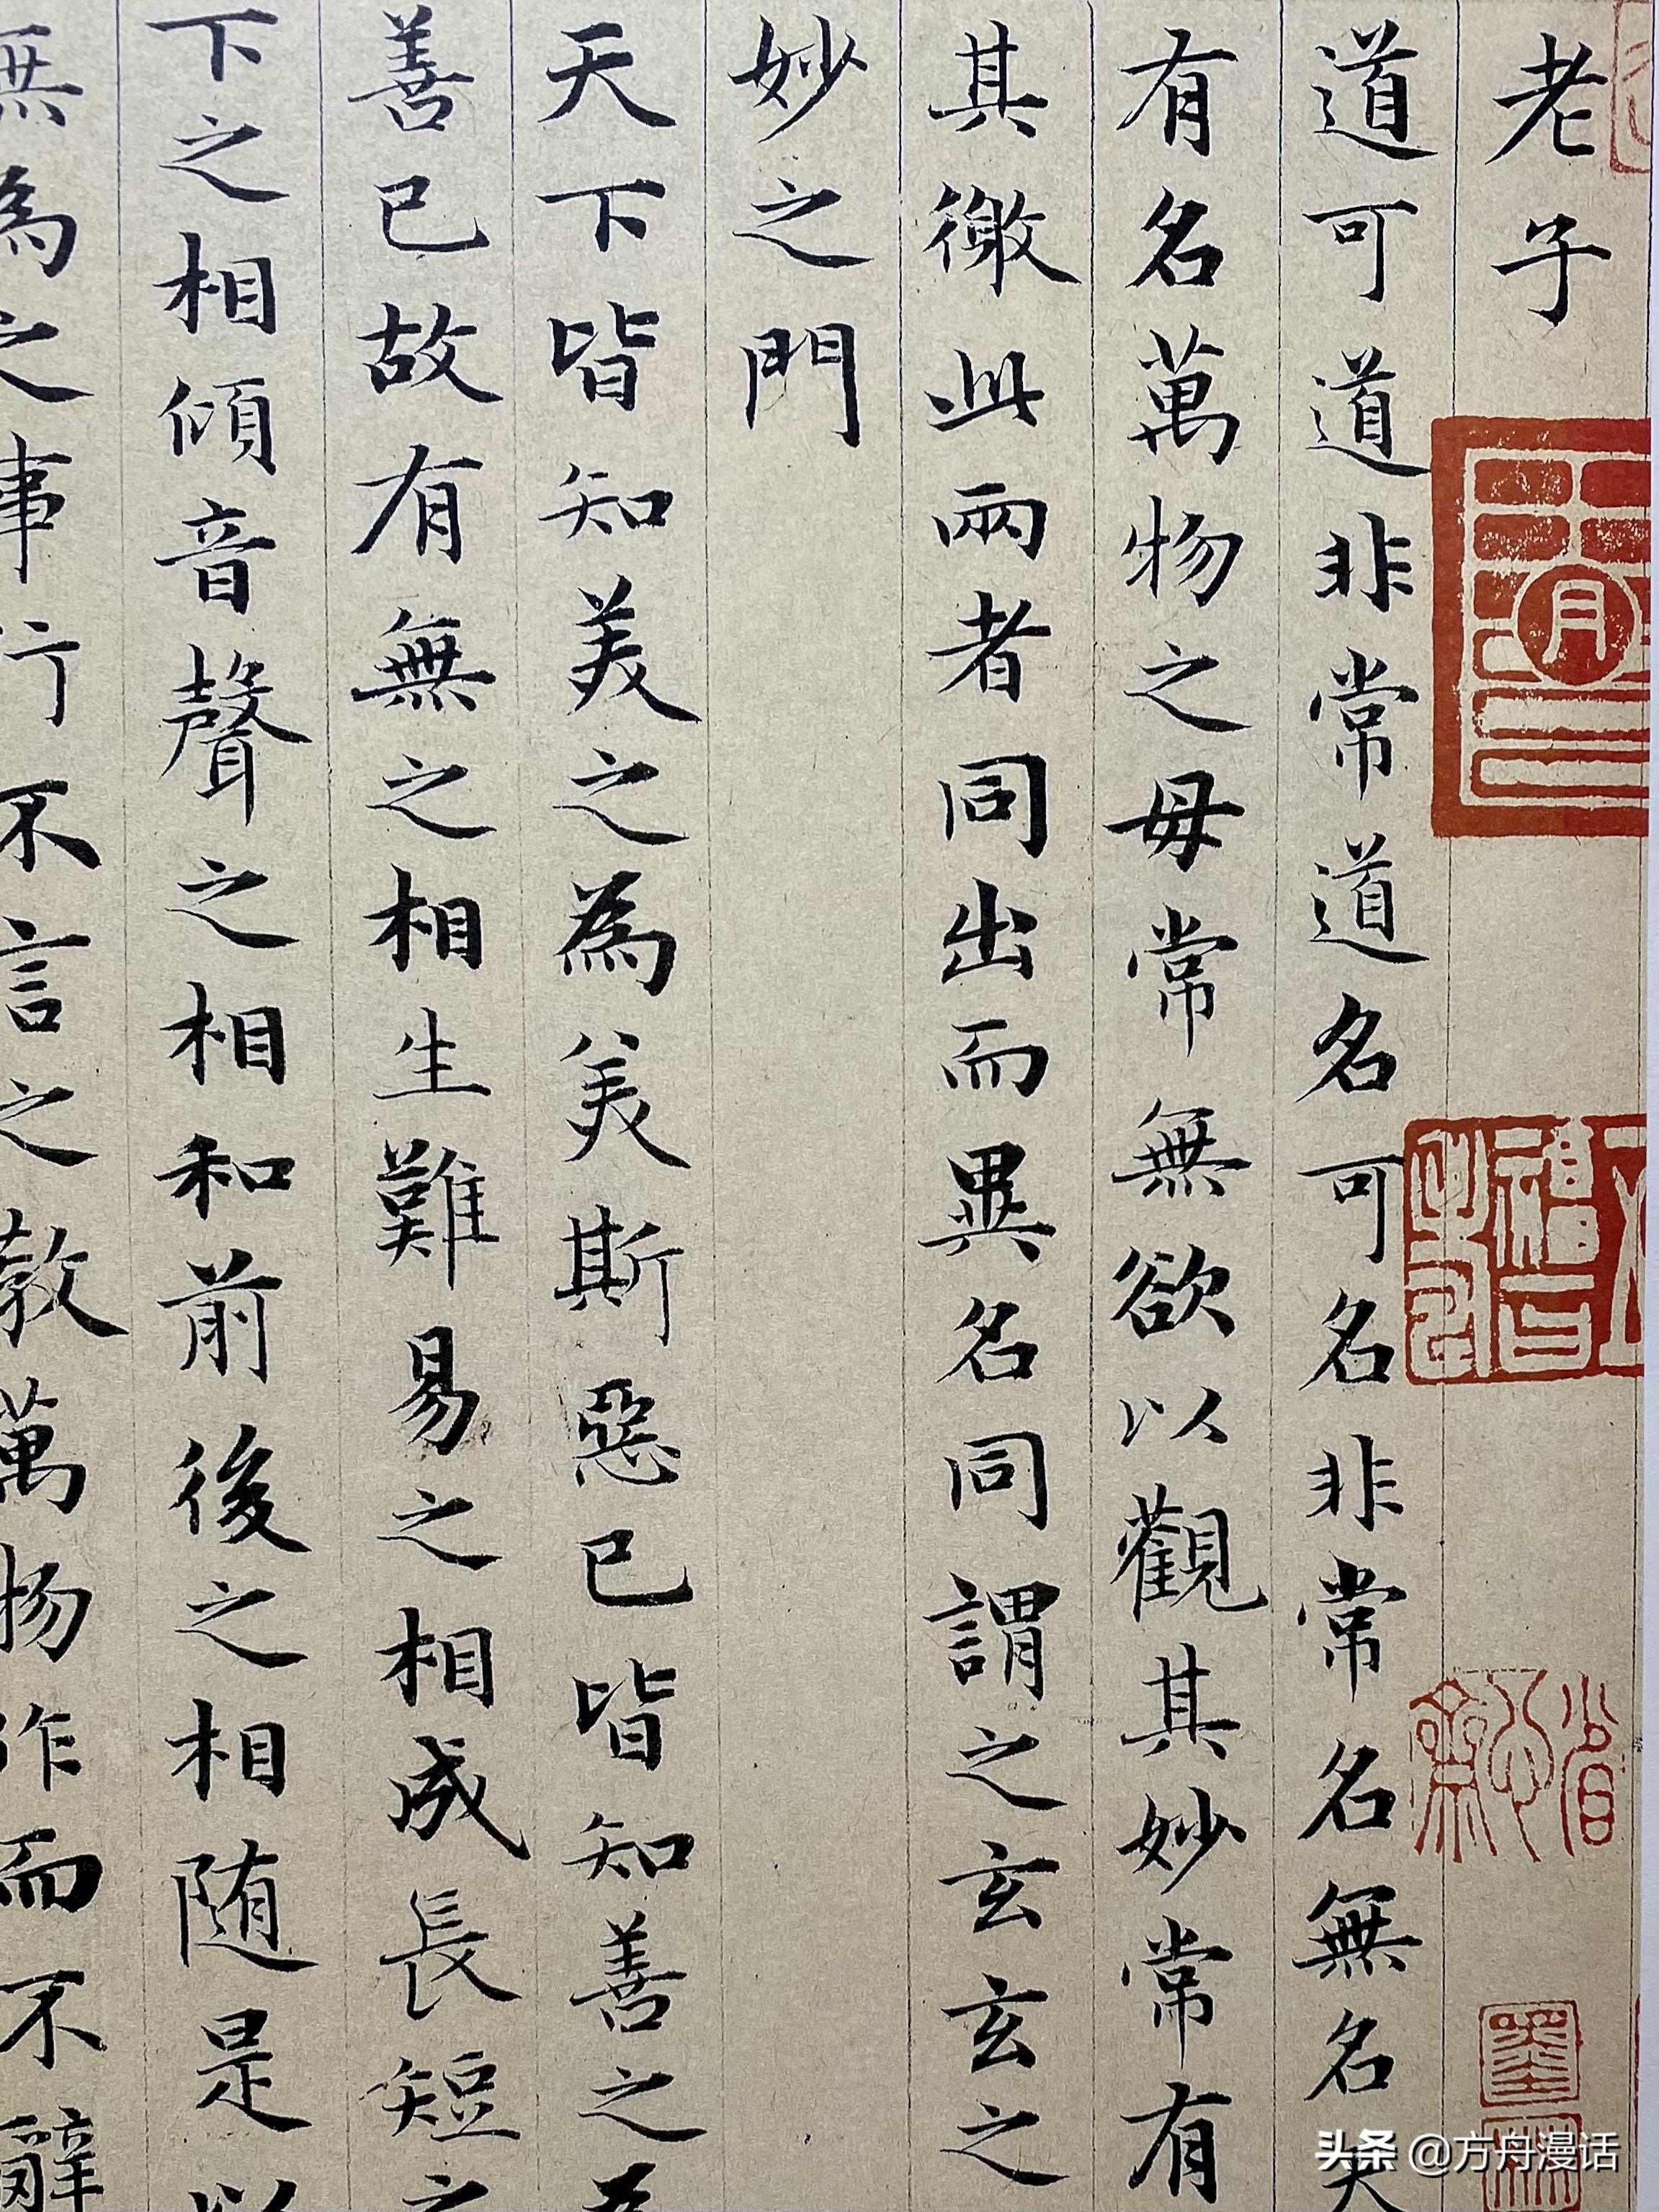 老子
道可道非常道名可名非常名無名天
有名萬物之母常無欲以觀其妙常有
其徼此兩者同出而異名同謂之玄玄之
妙之門
天下皆知美之為美斯惡已皆知善之為
善已故有無之相生難易之相成長短之
下之相傾音聲之相和前後之相随是以
無為之事行不言之教萬物作而不辭
頭条 @方舟漫话